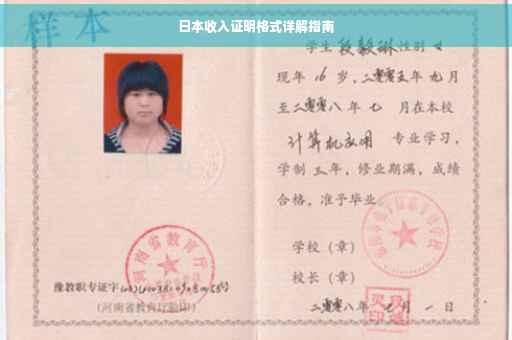 日本收入证明格式详解指南
样本
学生 段毅琳 性别 女
现年 16 岁，二零零五年 九 月
至二零零八年 七 月在本校
计算机应用 专业学习，
学制 三 年，修业期满，成绩
合格，准予毕业
学校（章）
校长（章）
二零零八年 七 月 一 日
河南省教育厅
豫教职专证字
（河南省教育厅验印）